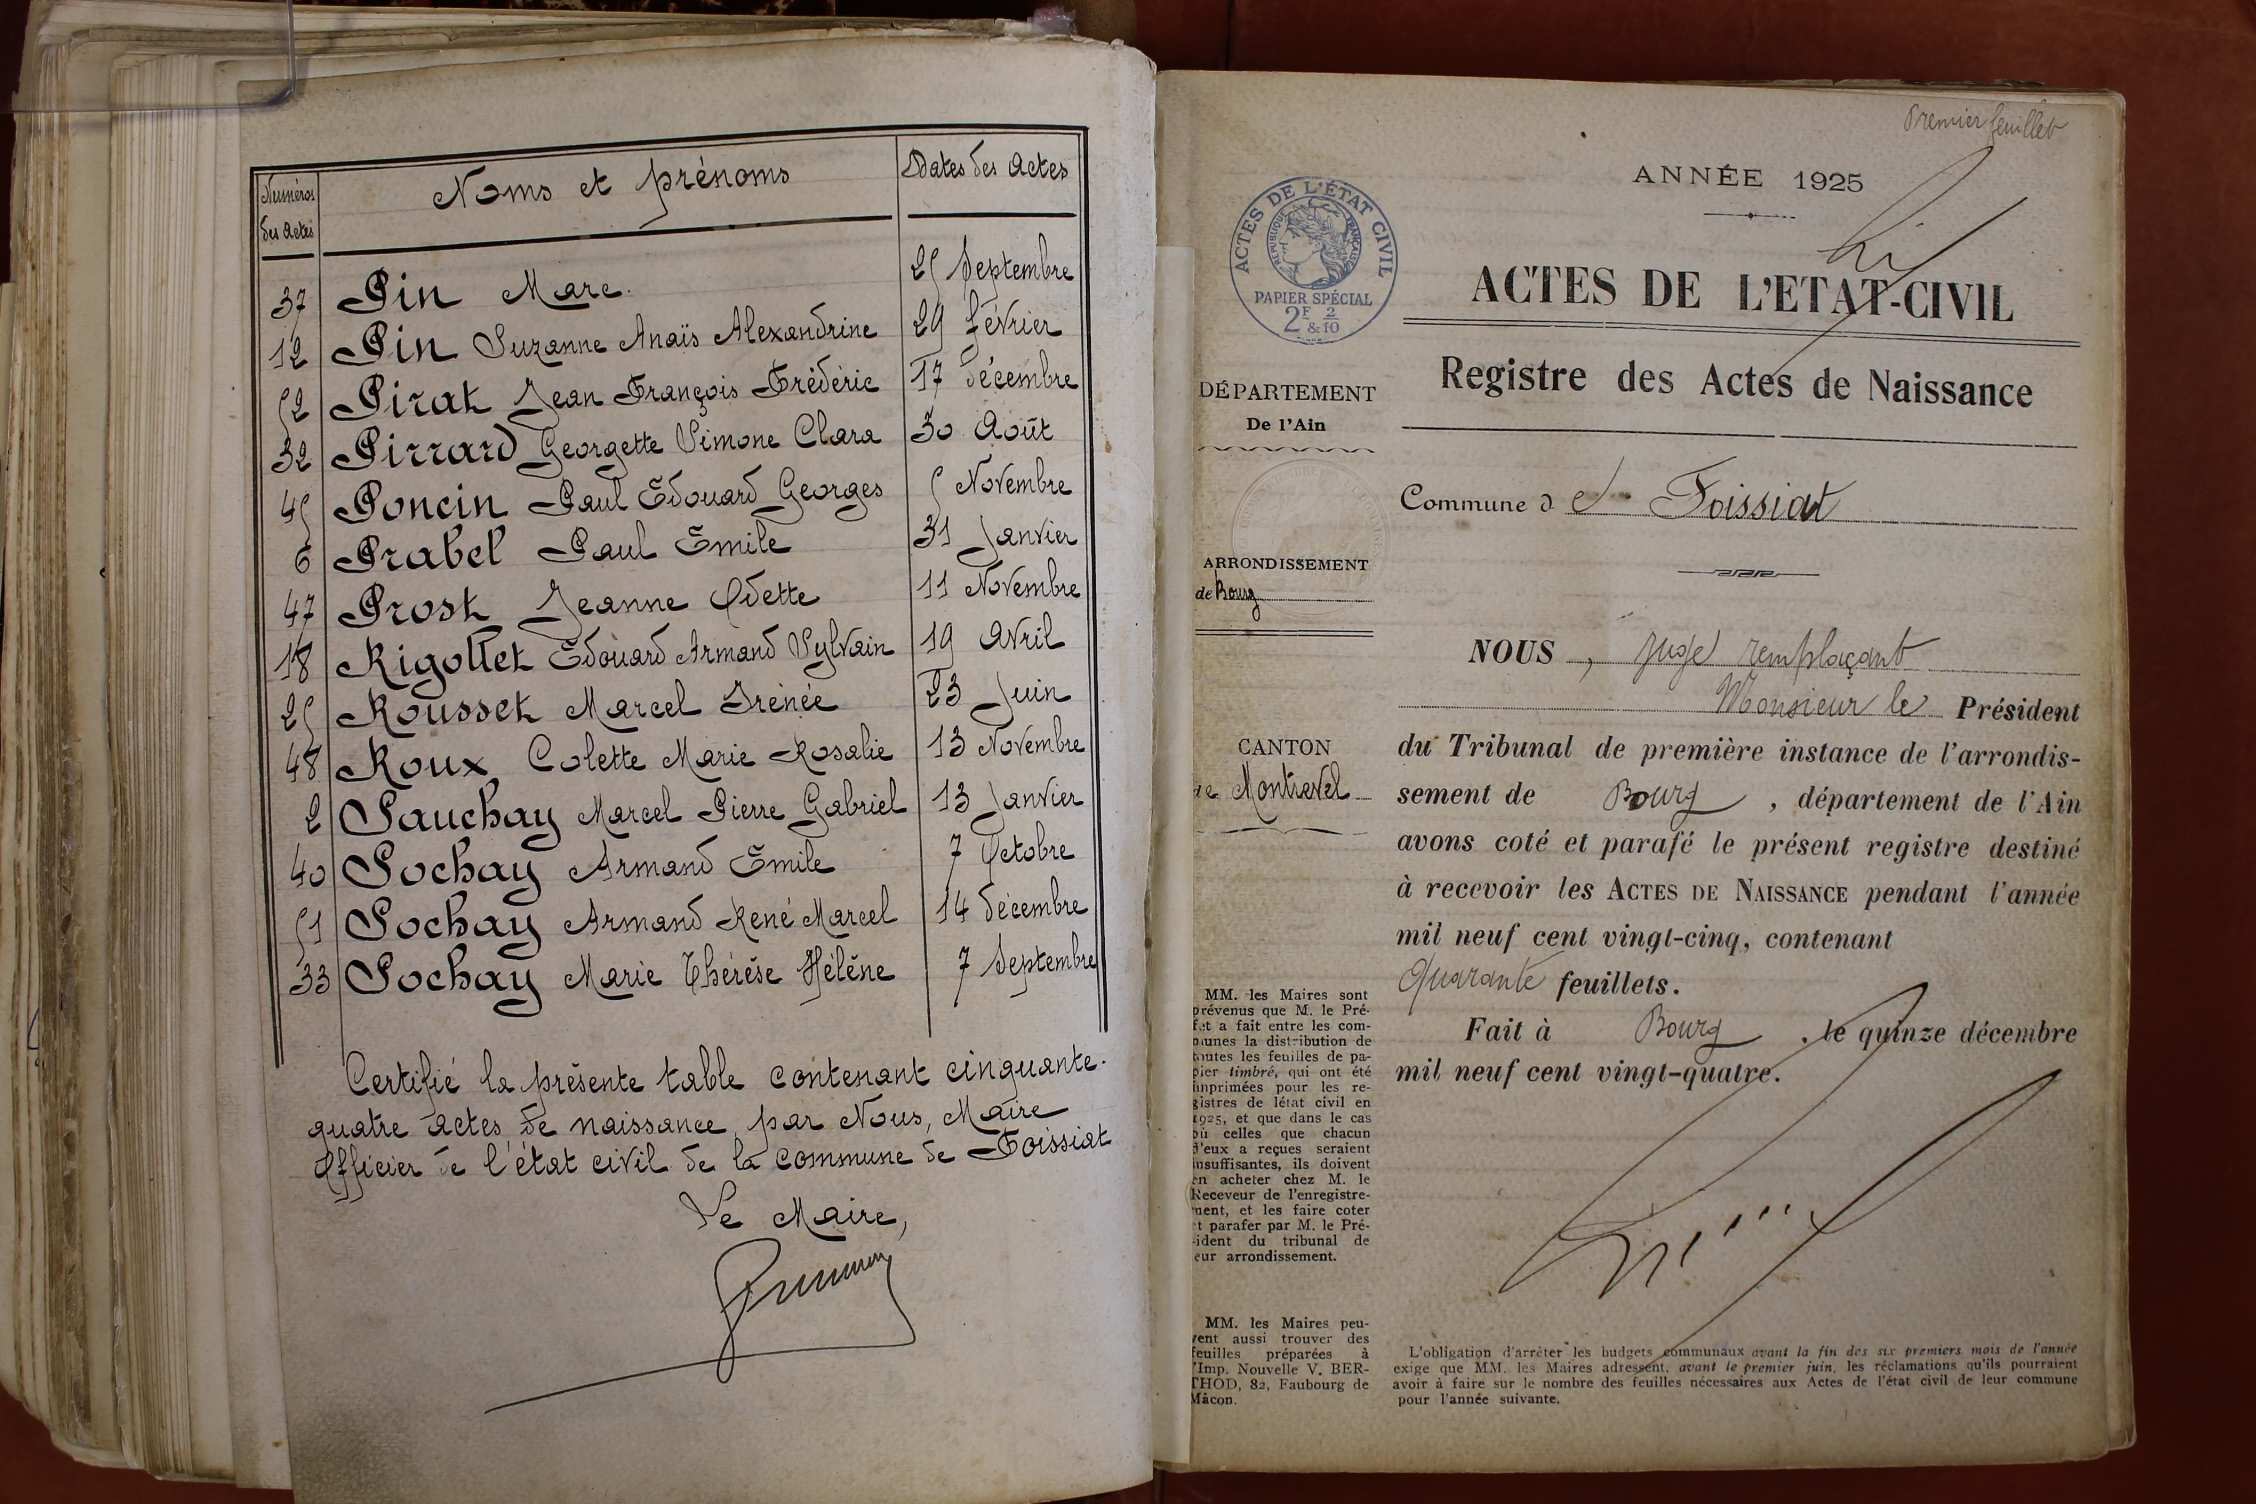 Numéros des Actes | Noms et prénoms | Dates des Actes
37 Pin Marc. 25 Septembre
12 Pin Suzanne Anaïs Alexandrine 29 février
52 Pirat Jean François Frédéric 17 décembre
32 Pirrard Georgette Simone Clara 30 Août
45 Poncin Paul Edouard Georges 5 Novembre
6 Prabel Paul Emile 31 Janvier
47 Prost Jeanne Odette 11 Novembre
18 Rigollet Edouard Armand Sylvain 19 Avril
25 Rousset Marcel Irénée 23 Juin
48 Roux Colette Marie Rosalie 13 Novembre
2 Sauchay Marcel Pierre Gabriel 13 Janvier
40 Sochay Armand Emile 7 Octobre
51 Sochay Armand René Marcel 14 décembre
33 Sochay Marie Thérèse Hélène 7 Septembre
Certifié la présente table contenant cinquante-
quatre actes de naissance par Nous, Maire
Officier de l'état civil de la commune de Foissiat
Le Maire,
Premier feuillet
ANNÉE 1925
ACTES DE L'ÉTAT CIVIL
RÉPUBLIQUE FRANÇAISE
PAPIER SPÉCIAL
2F 2
&10
ACTES DE L'ETAT-CIVIL
Registre des Actes de Naissance
DÉPARTEMENT
De l'Ain
Commune de Foissiat
ARRONDISSEMENT
de Bourg
CANTON
de Montrevel
NOUS, juge remplaçant
Monsieur le Président
du Tribunal de première instance de l'arrondis-
sement de Bourg, département de l'Ain
avons coté et parafé le présent registre destiné
à recevoir les ACTES DE NAISSANCE pendant l'année
mil neuf cent vingt-cinq, contenant
Quarante feuillets.
Fait à Bourg, le quinze décembre
mil neuf cent vingt-quatre.
MM. les Maires sont
prévenus que M. le Pré-
fet a fait entre les com-
munes la distribution de
toutes les feuilles de pa-
pier timbré, qui ont été
imprimées pour les re-
gistres de létat civil en
1925, et que dans le cas
où celles que chacun
d'eux a reçues seraient
insuffisantes, ils doivent
en acheter chez M. le
Receveur de l'enregistre-
ment, et les faire coter
et parafer par M. le Pré-
sident du tribunal de
leur arrondissement.
MM. les Maires peu-
vent aussi trouver des
feuilles préparées à
l'Imp. Nouvelle V. BER-
THOD, 82, Faubourg de
Mâcon.
L'obligation d'arrêter les budgets communaux avant la fin des six premiers mois de l'année
exige que MM. les Maires adressent, avant le premier juin, les réclamations qu'ils pourraient
avoir à faire sur le nombre des feuilles nécessaires aux Actes de l'état civil de leur commune
pour l'année suivante.